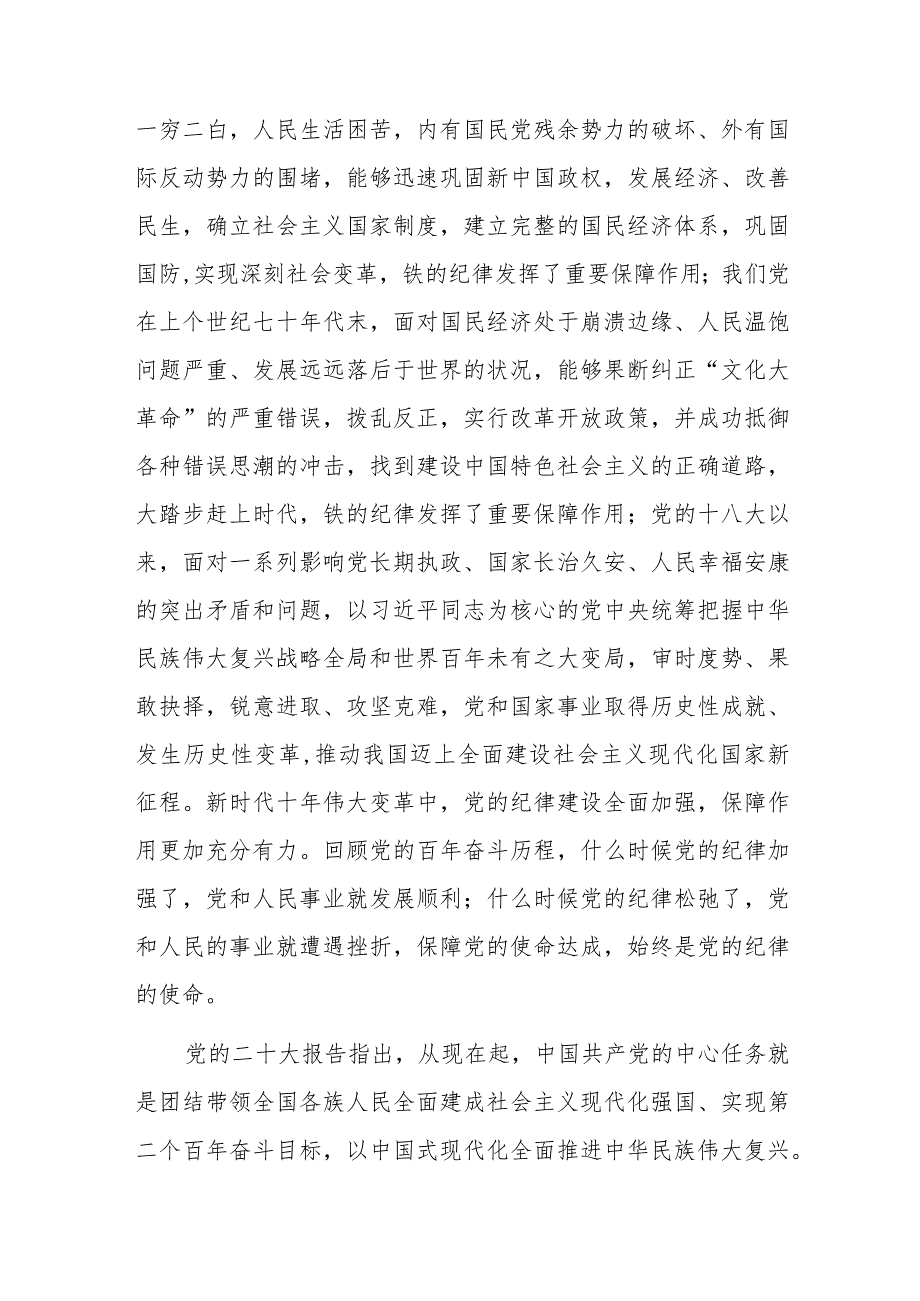 一穷二白，人民生活困苦，内有国民党残余势力的破坏、外有国
际反动势力的围堵，能够迅速巩固新中国政权，发展经济、改善
民生，确立社会主义国家制度，建立完整的国民经济体系，巩固
国防,实现深刻社会变革，铁的纪律发挥了重要保障作用；我们党
在上个世纪七十年代末，面对国民经济处于崩溃边缘、人民温饱
问题严重、发展远远落后于世界的状况，能够果断纠正“文化大
革命”的严重错误，拨乱反正，实行改革开放政策，并成功抵御
各种错误思潮的冲击，找到建设中国特色社会主义的正确道路，
大踏步赶上时代，铁的纪律发挥了重要保障作用；党的十八大以
来，面对一系列影响党长期执政、国家长治久安、人民幸福安康
的突出矛盾和问题，以习近平同志为核心的党中央统筹把握中华
民族伟大复兴战略全局和世界百年未有之大变局，审时度势、果
敢抉择，锐意进取、攻坚克难，党和国家事业取得历史性成就、
发生历史性变革,推动我国迈上全面建设社会主义现代化国家新
征程。新时代十年伟大变革中，党的纪律建设全面加强，保障作
用更加充分有力。回顾党的百年奋斗历程，什么时候党的纪律加
强了，党和人民事业就发展顺利；什么时候党的纪律松弛了，党
和人民的事业就遭遇挫折，保障党的使命达成，始终是党的纪律
的使命。
党的二十大报告指出，从现在起，中国共产党的中心任务就
是团结带领全国各族人民全面建成社会主义现代化强国、实现第
二个百年奋斗目标，以中国式现代化全面推进中华民族伟大复兴。